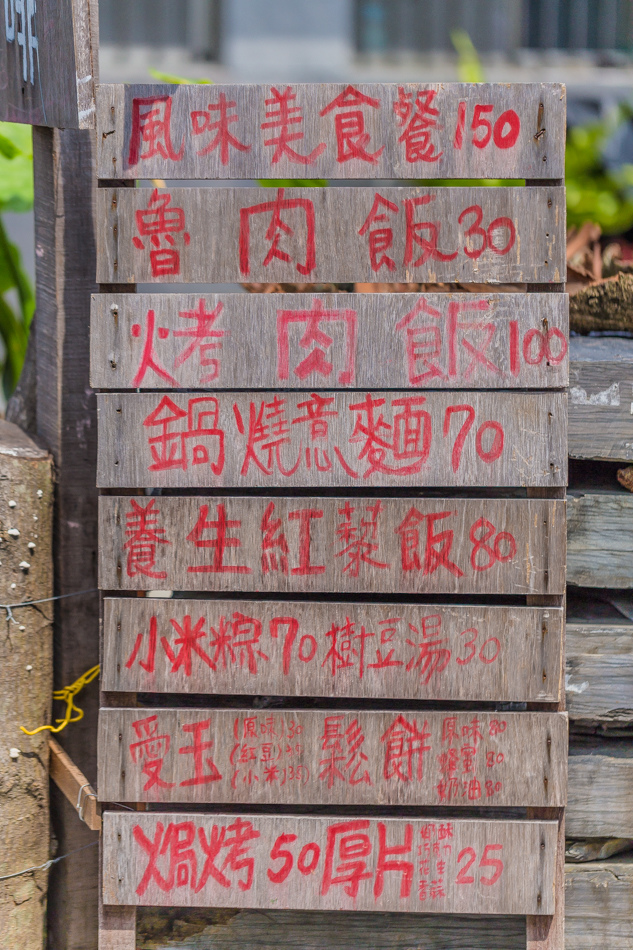 風味美食餐150
魯肉飯30
烤肉飯100
鍋燒意麵70
養生紅藜飯80
小米粽70樹豆湯30
愛玉
(原味)30
(紅豆)35
(小米)35
鬆餅
原味80
蜂蜜80
奶油80
焗烤50厚片
奶酥
花生
香蒜
25